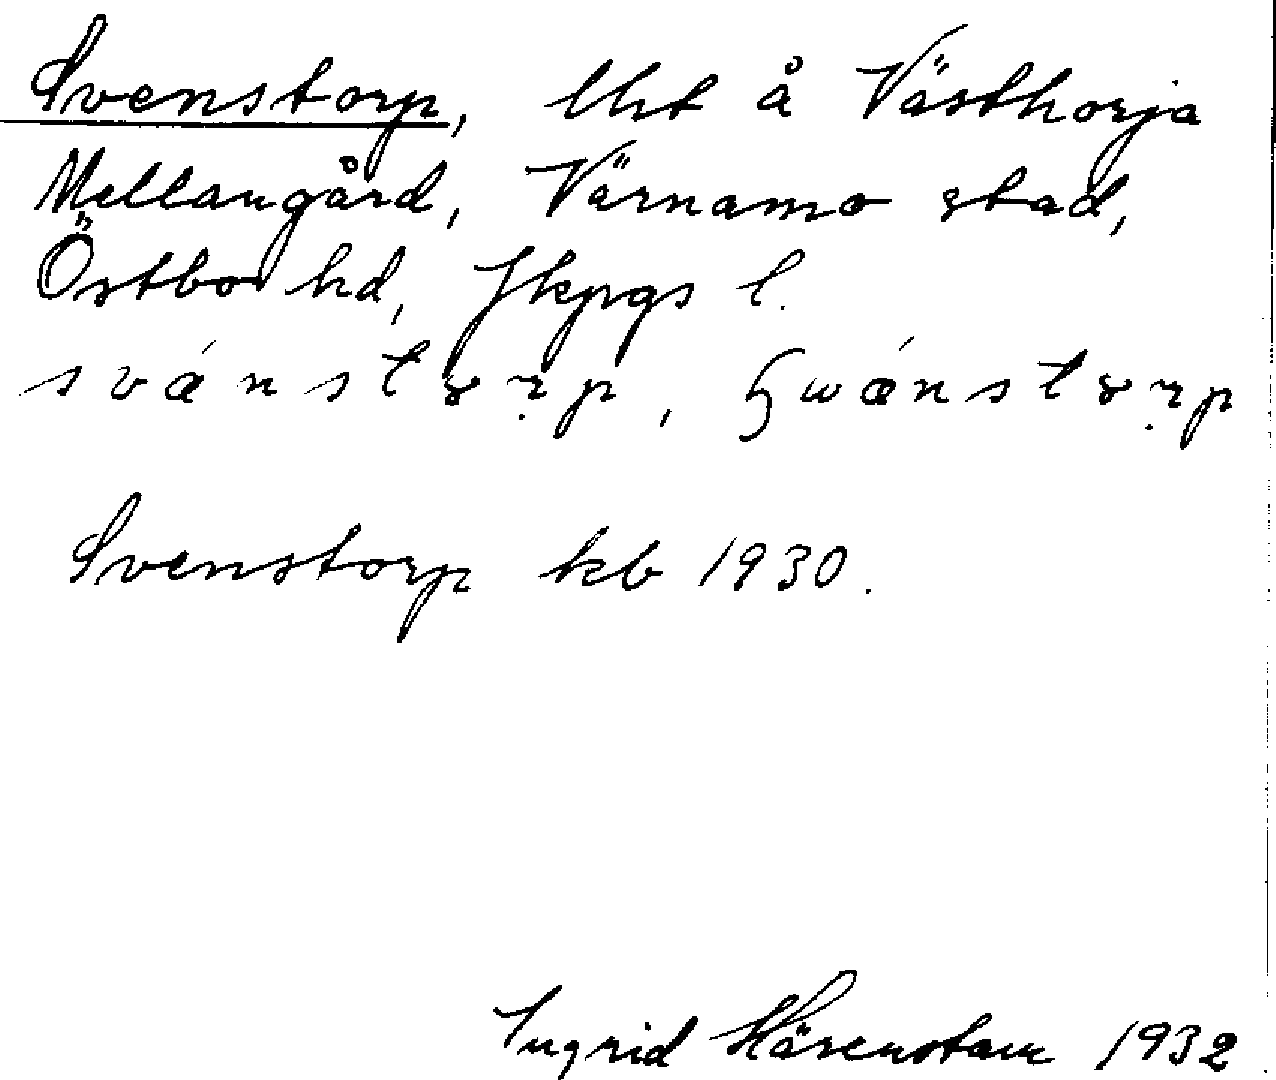 Svenstorp, lht å Västhorja
Mellangård, Värnamo stad,
Östbo hd, Jkpgs l.
Svenstorp kb 1930.
Ingrid Härenstam 1932